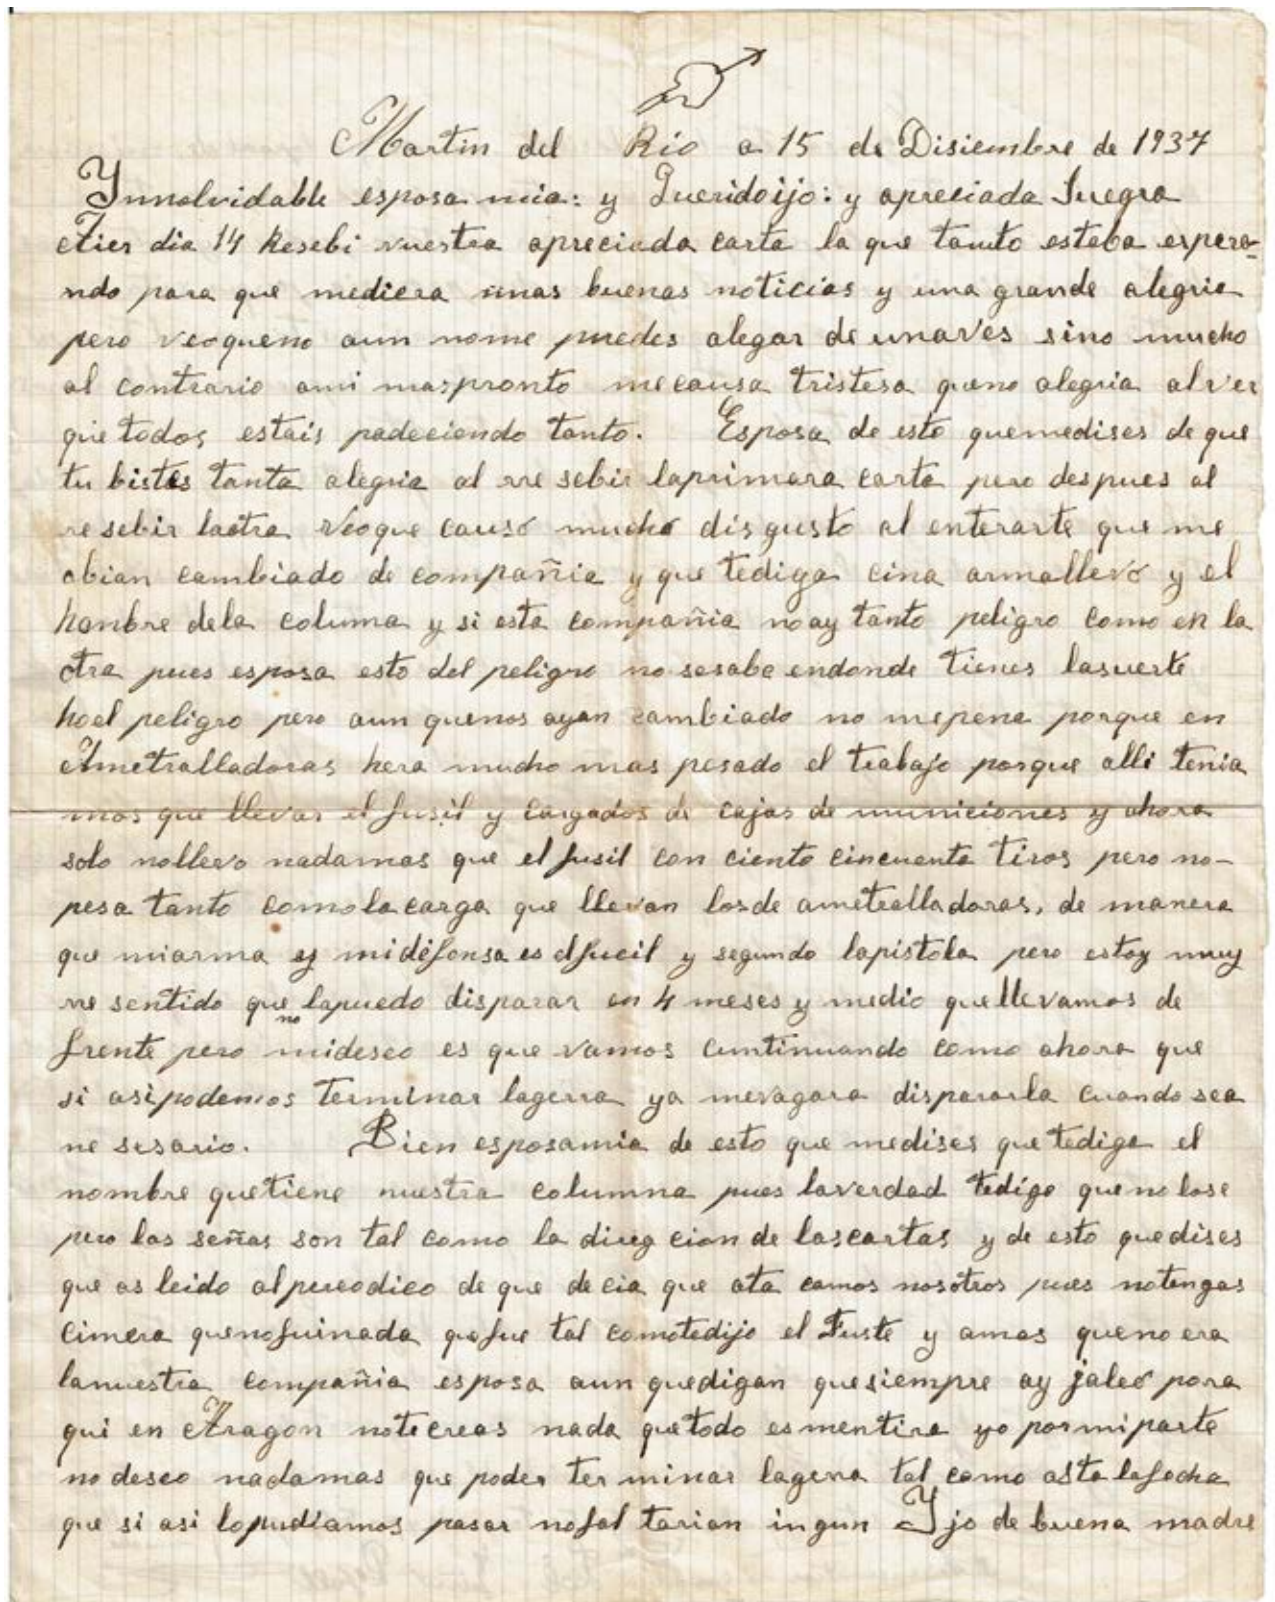 Martin del Rio a 15 de Disiembre de 1937
Ynnolvidable esposa mia: y Queridoijo: y apreciada Suegra
Aier dia 14 Resebi vuestra apreciada carta la que tanto estaba espera-
ndo para que mediera unas buenas noticias y una grande alegria
pero veoqueno aun nome puedes alegar de unaves sino mucho
al contrario ami maspronto mecausa tristesa queno alegria alver
que todos estais padeciendo tanto. Esposa de esto quemedises de que
tu bistes tanta alegria al rresebir laprimera carta pero despues al
resebir laotra veoque causó mucho disgusto al enterarte que me
abian cambiado de compañia y que tediga cina armallevó y el
honbre dela columa y si esta compañia noay tanto peligro como en la
otra pues esposa esto del peligro no sesabe endonde tienes lasuerte
hoel peligro pero aun quenos ayan cambiado no mepena porque en
Ametralladoras hera mucho mas pesado el trabajo porque alli tenia
mos que llevar el fusil y cargados de cajas de municiones y ahora
solo nollevo nadamas que el fusil con ciento cincuenta tiros pero no-
pesa tanto comolacarga que llevan losde ametralladoras, de manera
que miarma y midefensa es elfucil y segundo lapistola pero estoy muy
re sentido que no lapuedo disparar en 4 meses y medio quellevamos de
frente pero mideseo es que vamos cuntinuando como ahora que
si asipodemos terminar lagerra ya mevagara dispararla cuando sea
ne sesario. Bien esposamia de esto que medises que tediga el
nombre quetiene nuestra columna pues laverdad tedigo quenolose
pero las señas son tal como la direg cion de lascartas y de esto quedises
que as leido alpereodico de que de cia que ata camos nosotros pues notengas
cimera quenofuinada quefue tal comotedijo el Fuste y amas queno era
lanuestra compañia esposa aun quedigan quesiempre ay jaleó pora
qui en Aragon notecreas nada quetodo esmentira yo pormiparte
no deseo nadamas que poder ter minar lagerra tal como asta lafecha
que si asi lopudiamos pasar nofal tarian ingun Yjo de buena madre